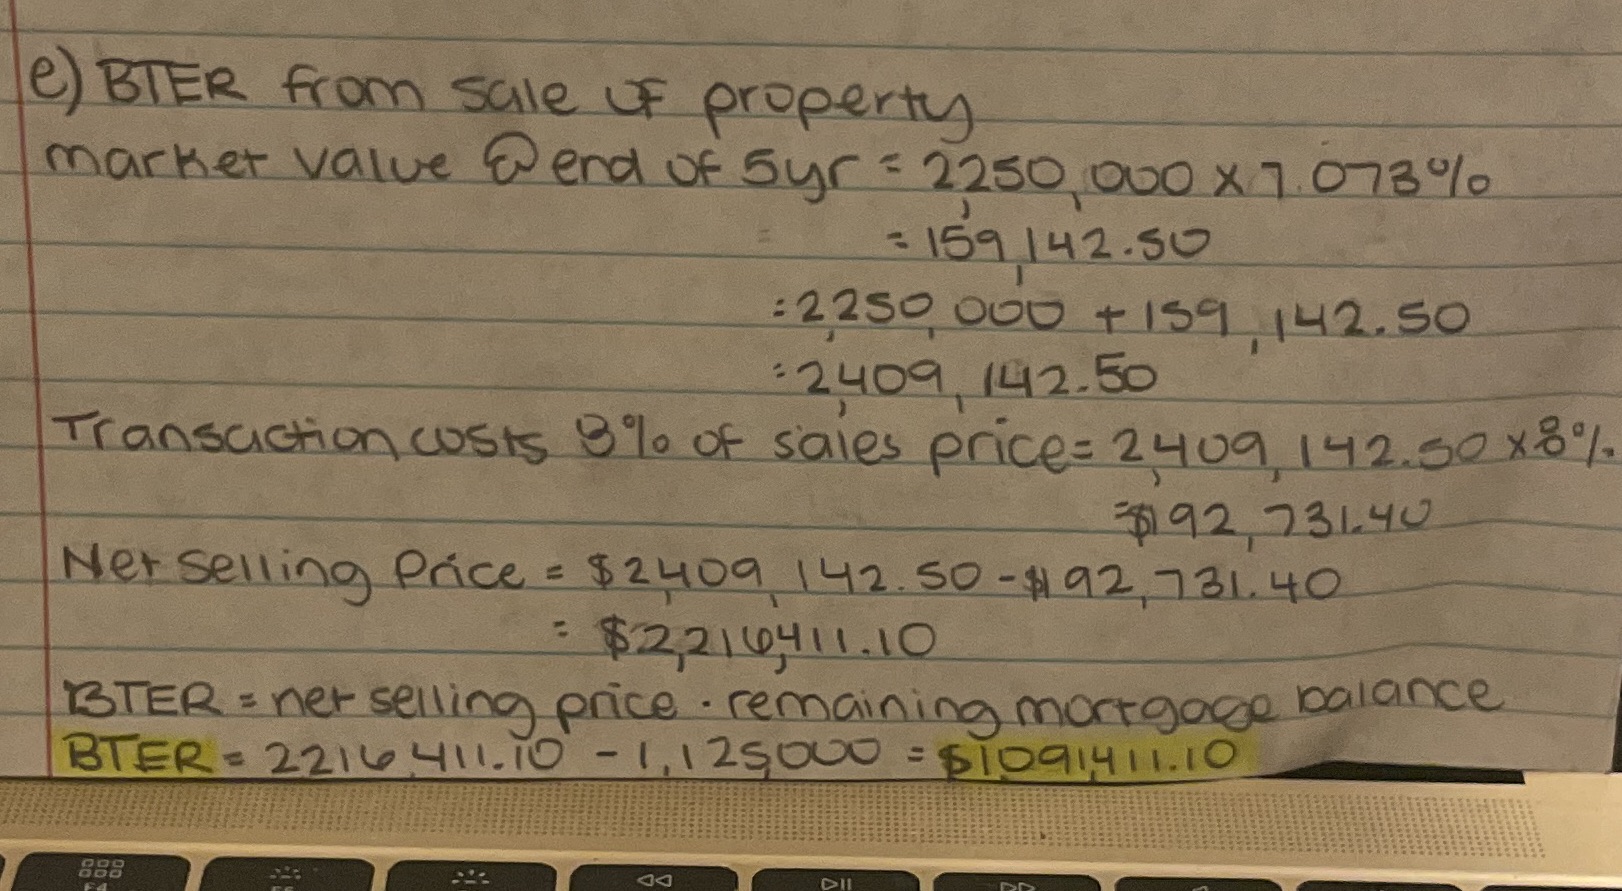 e) BTER from sale of property
market value @ end of 5yr = 2250,000 x 7.073%
= 159,142.50
= 2,250,000 + 159,142.50
= 2,409,142.50
Transaction costs 8% of sales price = 2,409,142.50 x 8%
= $192,731.40
Net selling Price = $2,409,142.50 - $192,731.40
= $2,216,411.10
BTER = net selling price - remaining mortgage balance
BTER = 2216,411.10 - 1,125,000 = $1,091,411.10
F4
F5